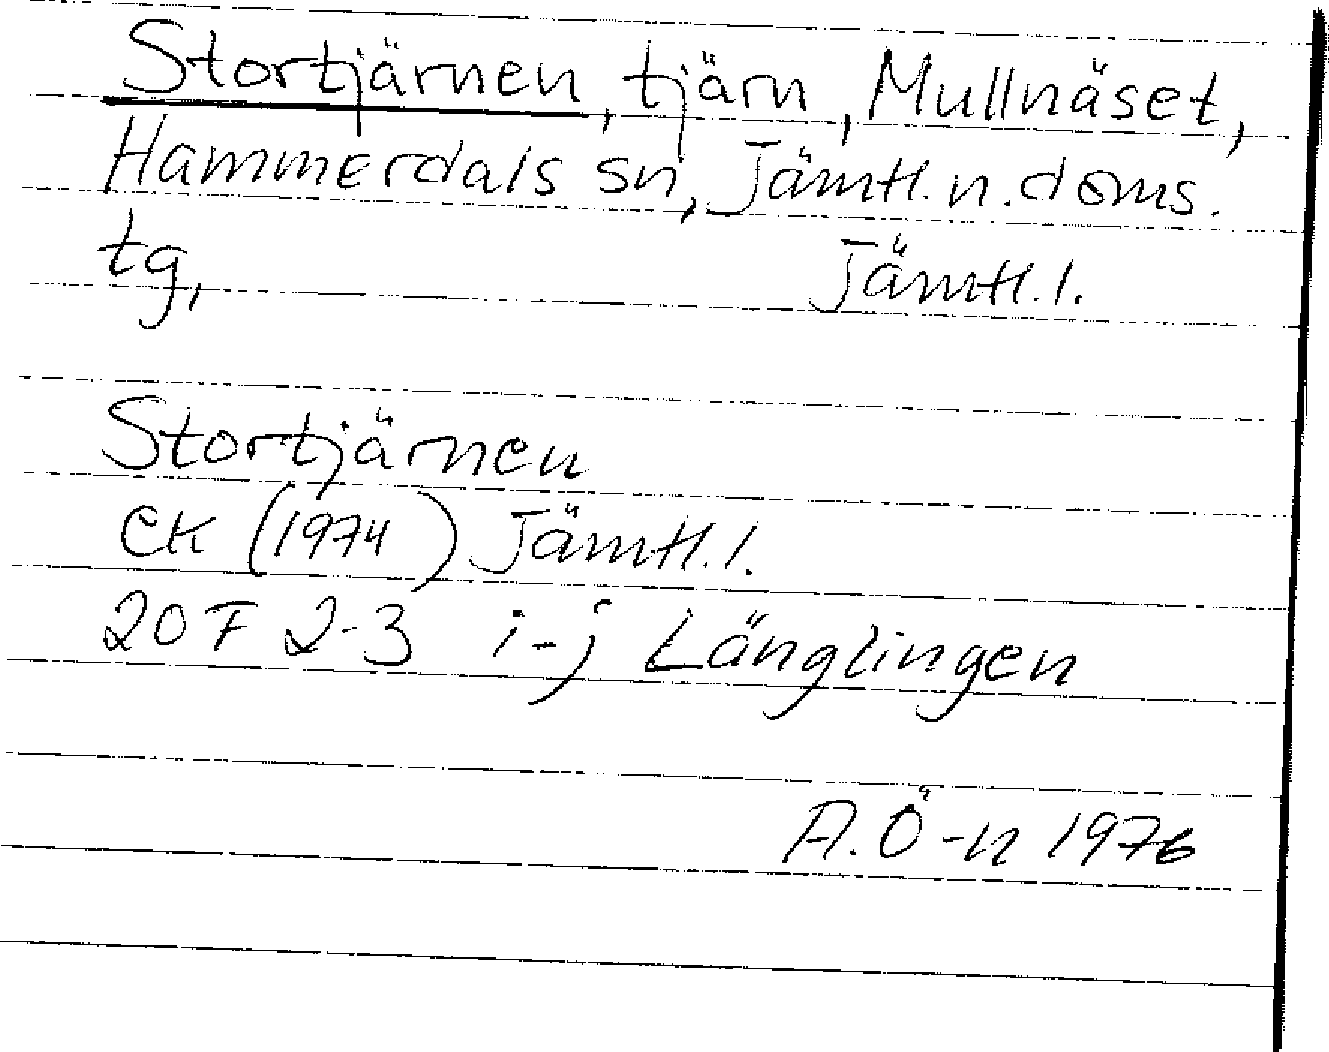 Stortjärnen, tjärn, Mullnäset,
Hammerdals sn, Jämtl. n. doms.
tg, Jämtl. l.
Stortjärnen
EK (1974) Jämtl. l.
20 F 2-3 i-j Länglingen
A. Ö-n 1976